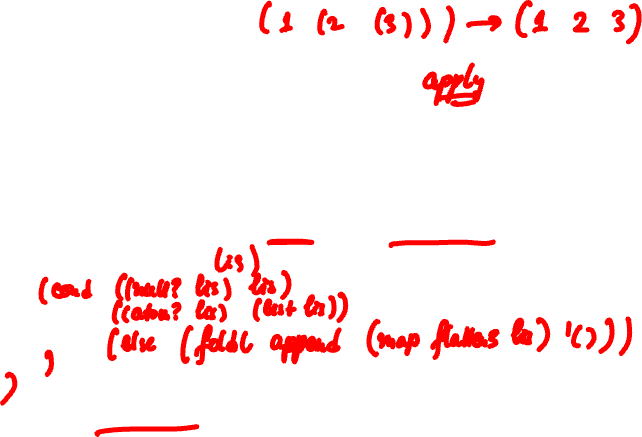 (1 (2 (3))) → (1 2 3)
apply
(lis)
(cond ((null? lis) lis)
((atom? lis) (list lis))
(else (foldl append (map flatten lis) '()))
)
)